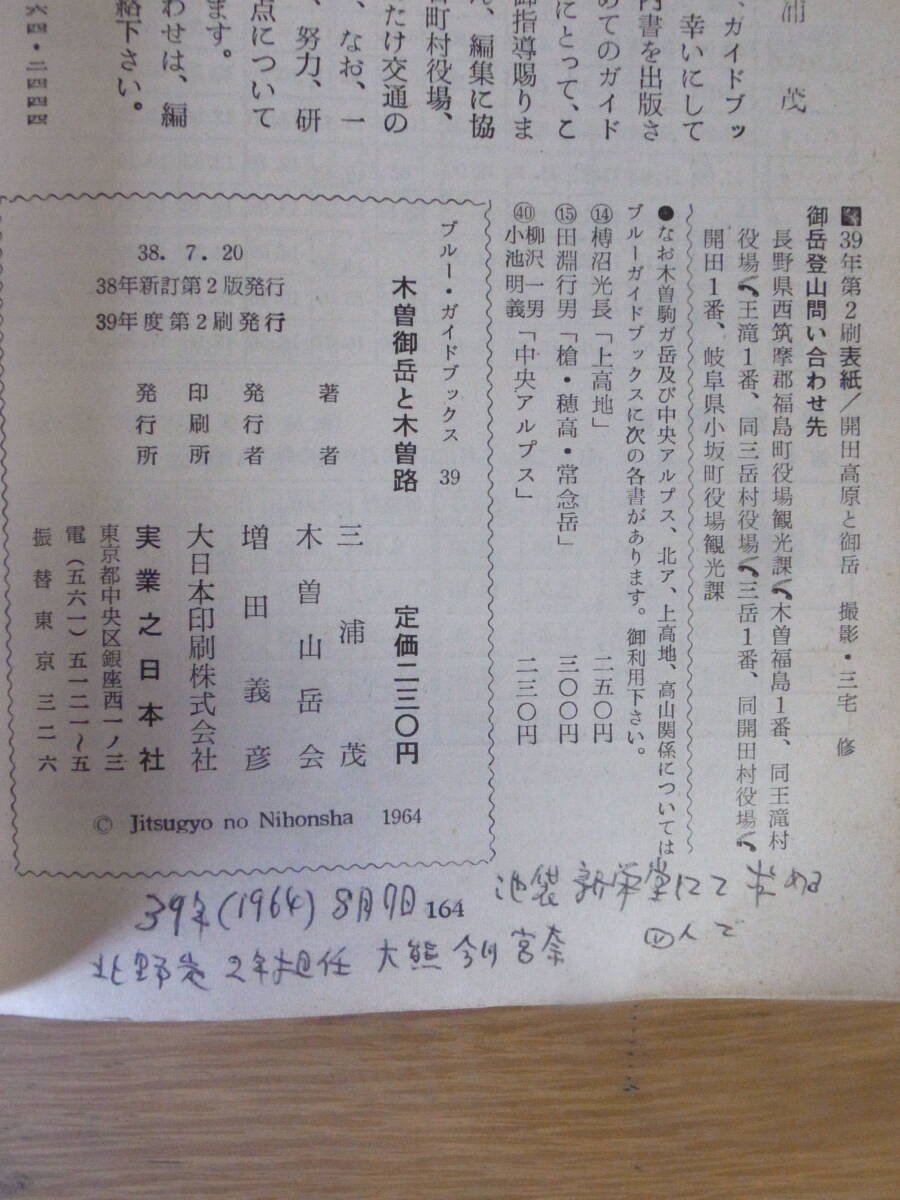 浦 茂
、ガイドブッ
幸いにして
内書を出版さ
めてのガイド
にとって、こ
御指導賜りま
ん、編集に協
町村役場、
たけ交通の
、なお、一
、努力、研
点について
ます。
わせは、編
絡下さい。
39年第2刷表紙/開田高原と御岳 撮影・三宅 修
御岳登山問い合わせ先
長野県西筑摩郡福島町役場観光課へ木曽福島1番、同王滝村
役場へ王滝1番、同三岳村役場へ三岳1番、同開田村役場へ
開田1番、岐阜県小坂町役場観光課
●なお木曽駒ガ岳及び中央アルプス、北ア、上高地、高山関係については
ブルーガイドブックスに次の各書があります。御利用下さい。
⑭樽沼光長「上高地」 二五〇円
⑮田淵行男「槍・穂高・常念岳」 三〇〇円
㊵柳沢一男
小池明義「中央アルプス」 二三〇円
ブルー・ガイドブックス 39
木曽御岳と木曽路 定価二三〇円
38. 7. 20
38年新訂第2版発行
39年度第2刷発行
著者 三浦 茂
木曽山岳会
発行者 増田義彦
印刷所 大日本印刷株式会社
発行所 実業之日本社
東京都中央区銀座西一ノ三
電(五六一)五一二一〜五
振替東京三二六
© Jitsugyo no Nihonsha 1964
164
39年(1964) 8月7日 池袋 新栄堂にて 求める
北野 2年担任 大熊 今川 宮奈 四人で